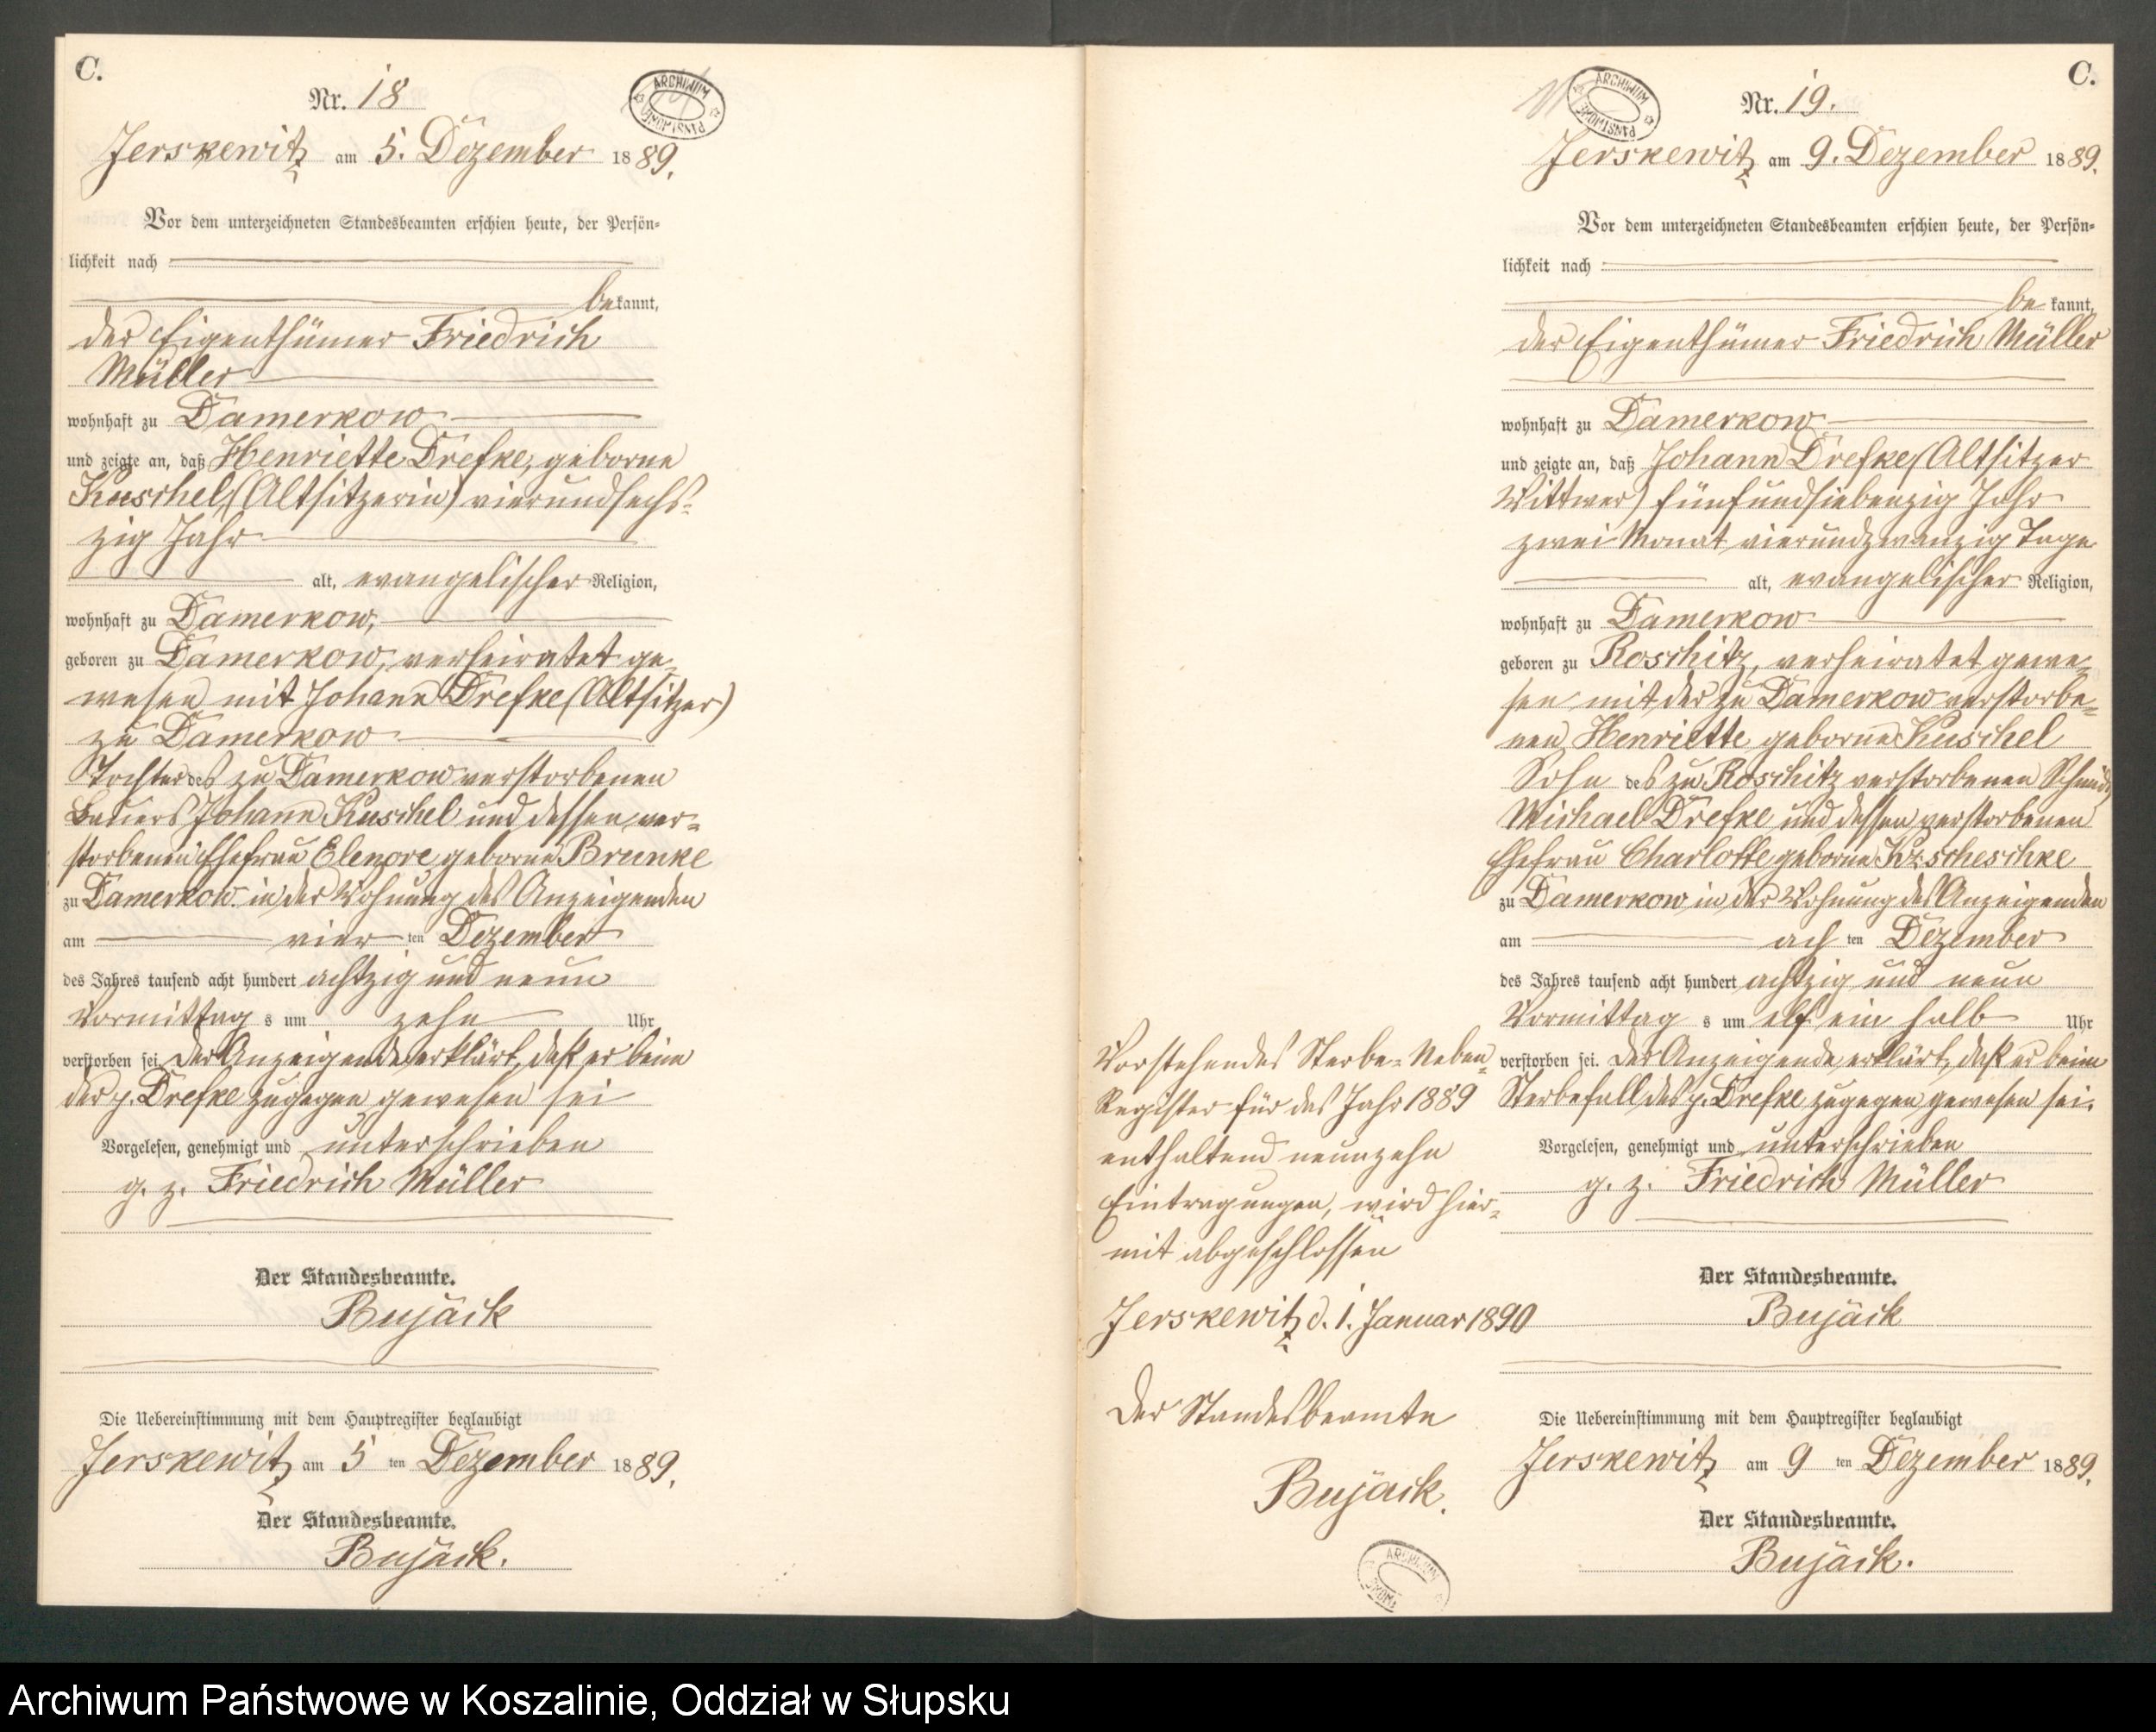 C.
Nr. 18
ARCHIWUM PAŃSTWOWE
Jerskewitz am 5. Dezember 1889.
Vor dem unterzeichneten Standesbeamten erschien heute, der Persön-
lichkeit nach
bekannt,
der Eigenthümer Friedrich
Müller
wohnhaft zu Damerkow
und zeigte an, daß Henriette Drefke, geborne
Kuschel (Altsitzerin) vierundsechs-
zig Jahr
alt, evangelischer Religion,
wohnhaft zu Damerkow,
geboren zu Damerkow, verheiratet ge-
wesen mit Johann Drefke (Altsitzer)
zu Damerkow
Tochter des zu Damerkow verstorbenen
Bauers Johann Kuschel und dessen ver-
storbenen Ehefrau Elenore geborne Brunke
zu Damerkow in der Wohnung des Anzeigenden
am vier ten Dezember
des Jahres tausend acht hundert achtzig und neun
Vormittag s um zehn Uhr
verstorben sei. Der Anzeigende erklärt, daß er beim
der p. Drefke zugegen gewesen sei
Vorgelesen, genehmigt und unterschrieben
g. z. Friedrich Müller
Der Standesbeamte.
Bujack
Die Uebereinstimmung mit dem Hauptregister beglaubigt
Jerskewitz am 5 ten Dezember 1889.
Der Standesbeamte.
Bujack.
Vorstehendes Sterbe-Neben-
Register für das Jahr 1889
enthaltend neunzehn
Eintragungen, wird hier-
mit abgeschlossen
Jerskewitz d. 1. Januar 1890
Der Standesbeamte
Bujack.
C.
Nr. 19.
ARCHIWUM PAŃSTWOWE
Jerskewitz am 9. Dezember 1889.
Vor dem unterzeichneten Standesbeamten erschien heute, der Persön-
lichkeit nach
be kannt,
der Eigenthümer Friedrich Müller
wohnhaft zu Damerkow
und zeigte an, daß Johann Drefke (Altsitzer
Wittwer) fünfundsiebenzig Jahr
zwei Monat vierundzwanzig Tage
alt, evangelischer Religion,
wohnhaft zu Damerkow
geboren zu Roschitz, verheiratet gewe-
sen mit der zu Damerkow verstorbe-
nen Henriette geborne Kuschel
Sohn des zu Roschitz verstorbenen Schmied
Michael Drefke und dessen verstorbenen
Ehefrau Charlotte geborne
zu Damerkow in der Wohnung des Anzeigenden
am ach ten Dezember
des Jahres tausend acht hundert achtzig und neun
Vormittag s um elf ein halb Uhr
verstorben sei. Der Anzeigende erklärt, daß er beim
Sterbefall des p. Drefke zugegen gewesen sei.
Vorgelesen, genehmigt und unterschrieben
g. z. Friedrich Müller
Der Standesbeamte.
Bujack
Die Uebereinstimmung mit dem Hauptregister beglaubigt
Jerskewitz am 9 ten Dezember 1889.
Der Standesbeamte.
Bujack.
Archiwum Państwowe w Koszalinie, Oddział w Słupsku